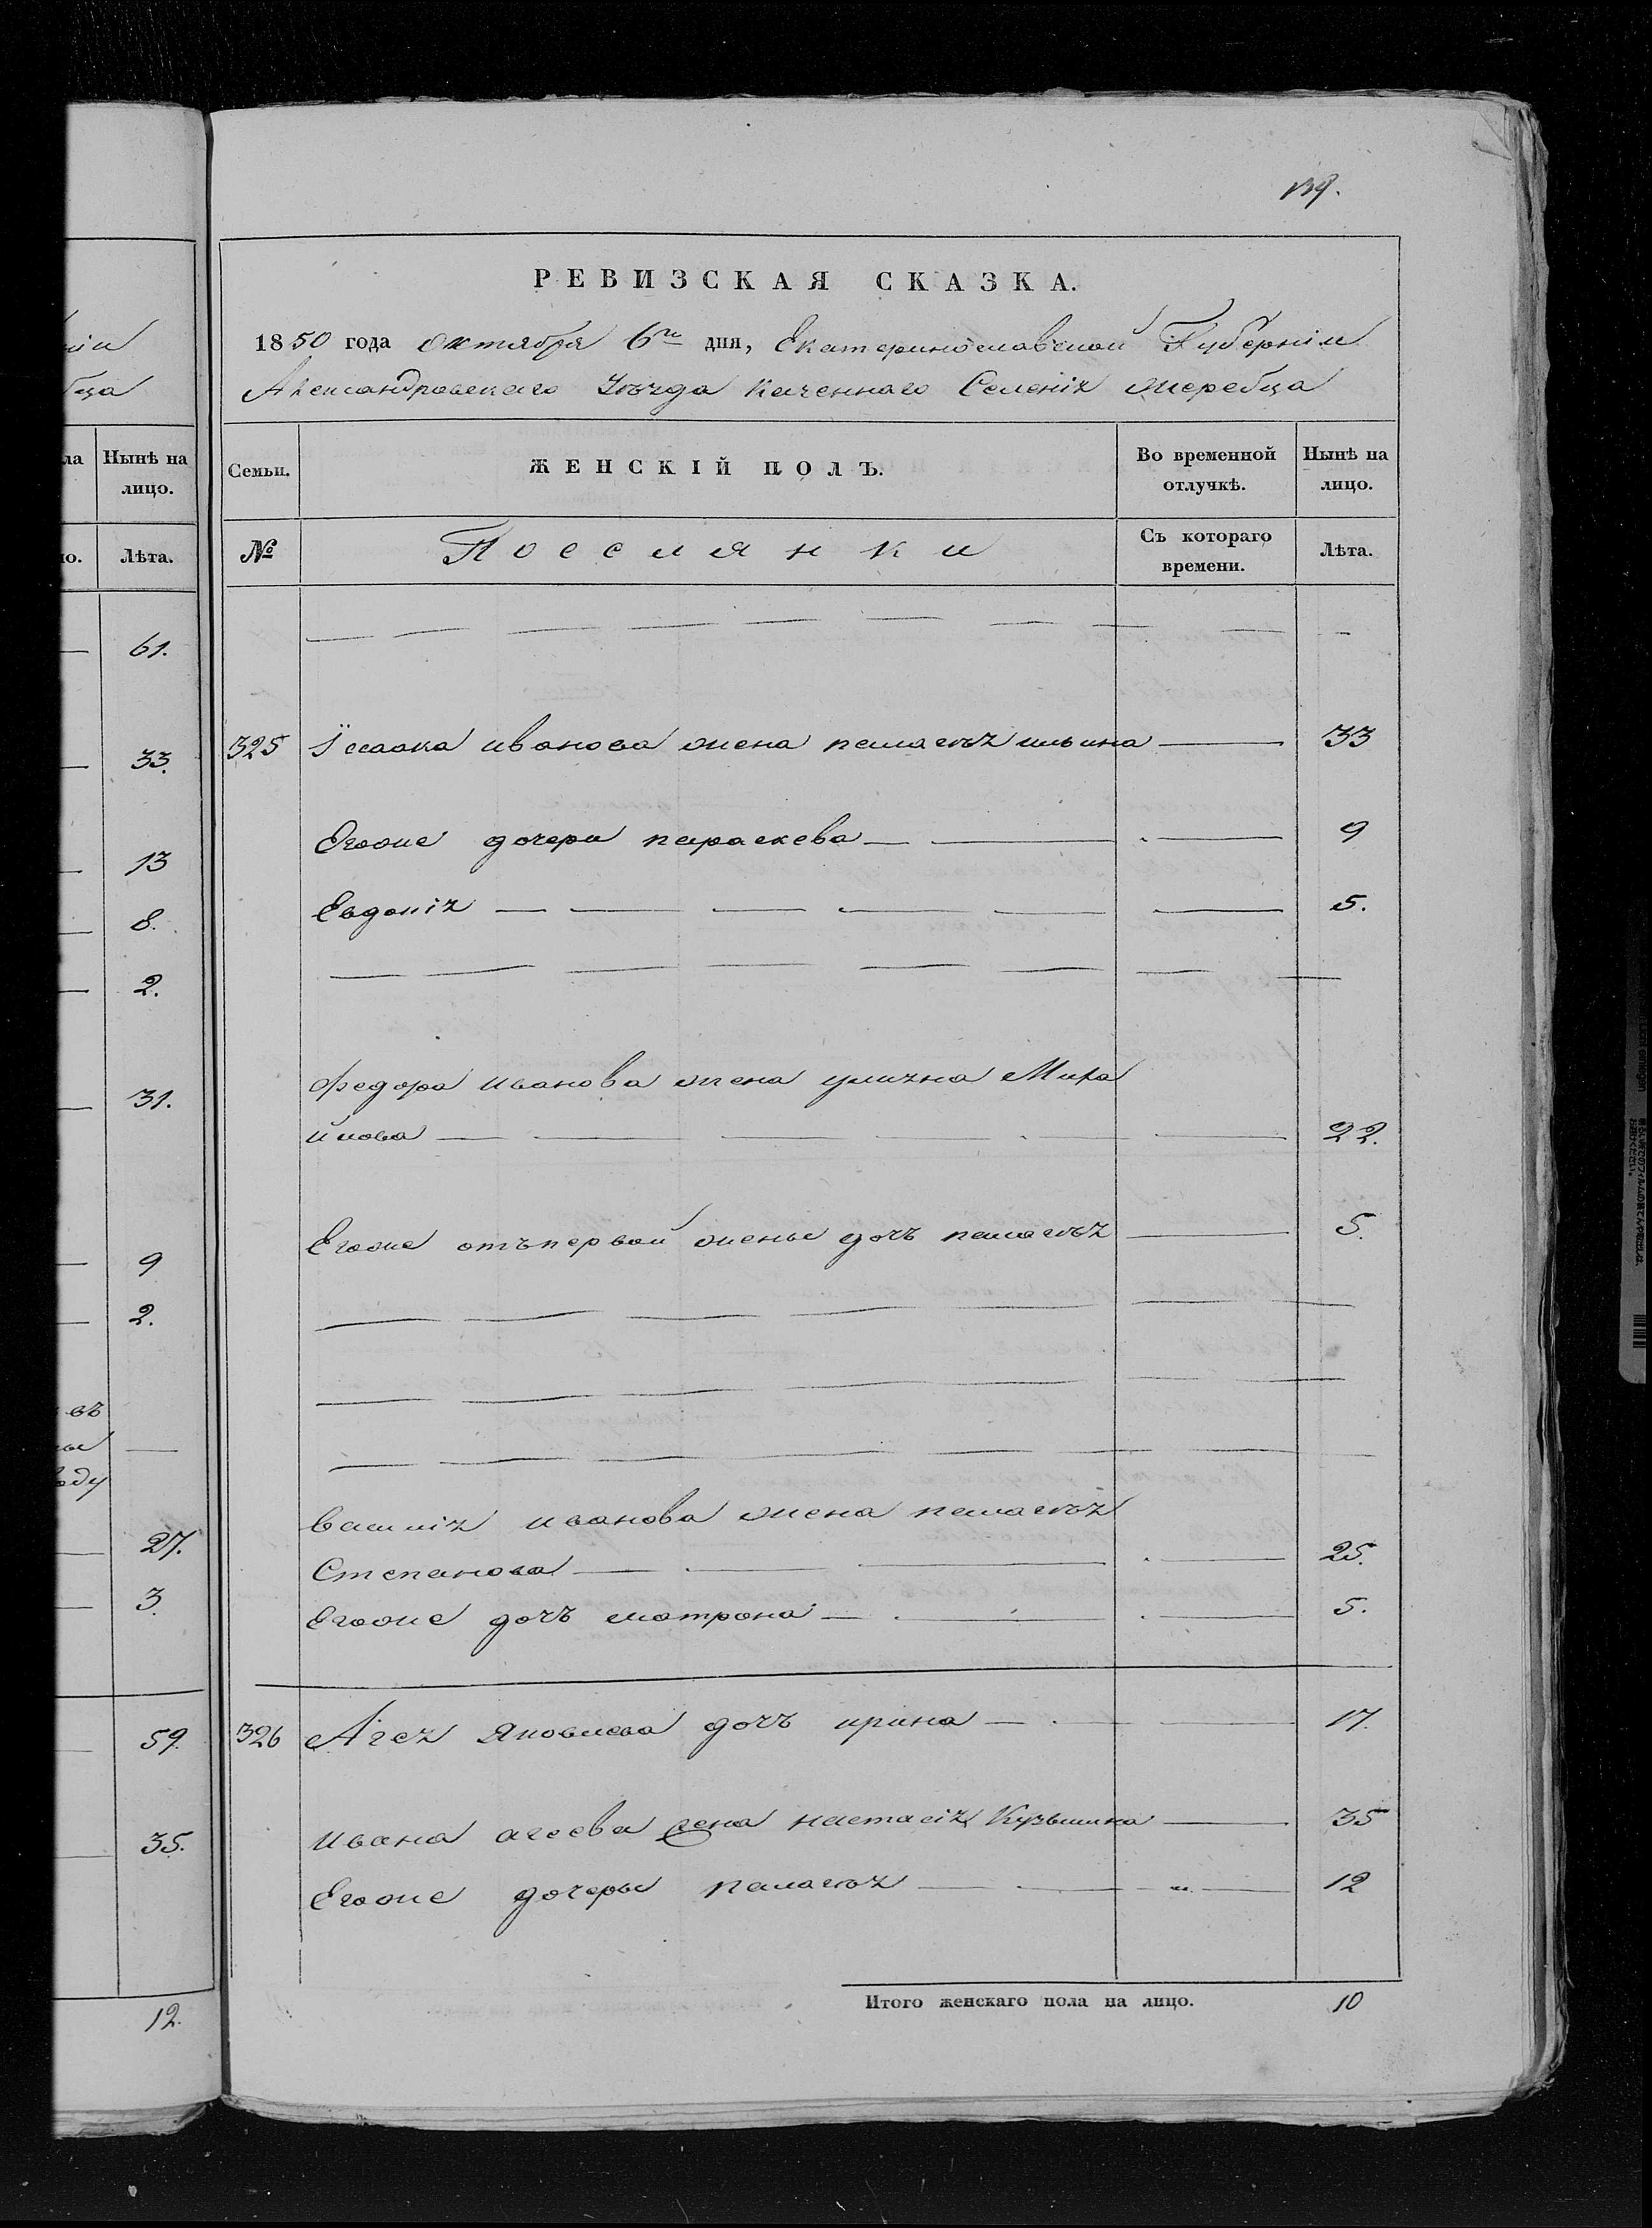 ніи
бца
ла
Нынѣ на
лицо.
но.
Лѣта.
61.
33.
13
8.
2.
31.
9
2.
въ
оду
27.
3.
59.
35.
12.
139.
РЕВИЗСКАЯ СКАЗКА.
1850 года Октября 6го дня, Екатеринославской Губерніи
Александровскаго Уѣзда казеннаго Селенія жеребца
Семьи.
ЖЕНСКІЙ ПОЛЪ.
Во временной отлучкѣ.
Нынѣ на лицо.
№
Поселянки
Съ котораго времени.
Лѣта.
325 Ісаака иванова жена пелагѣя ильина — 33
Егоже дочери параскева — 9
Евдокія — 5.
федора иванова жена Миха
йлова — 22.
Егоже отъ первой жены дочь пелагѣя — 5.
василія иванова жена пелагѣя
Степанова — 25.
Егоже дочь матрона — 5.
326 Агея Яковлева дочь ирина — 17.
ивана агеева жена настасія Кузьмина — 35
Егоже дочеры пелагѣя — 12
Итого женскаго пола на лицо. 10